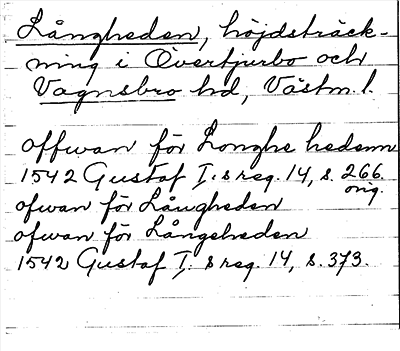 Långheden, höjdsträck-
ning i Övertjurbo och
Vagnsbro hd, Västm. l.
offwan för Longhe hedenn
1542 Gustaf I:s reg. 14, s. 266.
orig.
ofwan för Låugheden
ofwan för Långeheden
1542 Gustaf I:s reg. 14, s. 373.